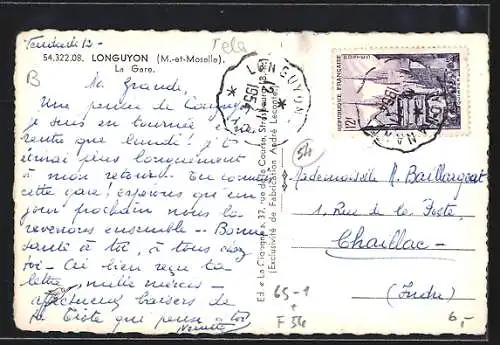 Vendredi 12 -
54.322.08. LONGUYON (M.-et-Moselle).
La Gare.
B
Ma Grande,
Une pensée de Longuyon
je suis en tournée et
rentre que lundi! je t'
écrirai plus longuement
à mon retour. Tu connais
cette gare! espérons qu'un
jour prochain nous la
reverrons ensemble - Bonne
santé à toi, à tous chez
toi - Ai bien reçu ta
lettre, mille mercis -
affectueux baisers de
la Titte que pense à toi
Ed. « La Cigogne », 37, rue de la Course, Strasbourg
(Exclusivité de Fabrication André Leconte)
LONGUYON
12
1954
REPUBLIQUE FRANÇAISE
POSTES
54
Mademoiselle M. Baillargeat
1, Rue de la Poste,
Chaillac -
(Indre)
65-1
+
F 54
6,-